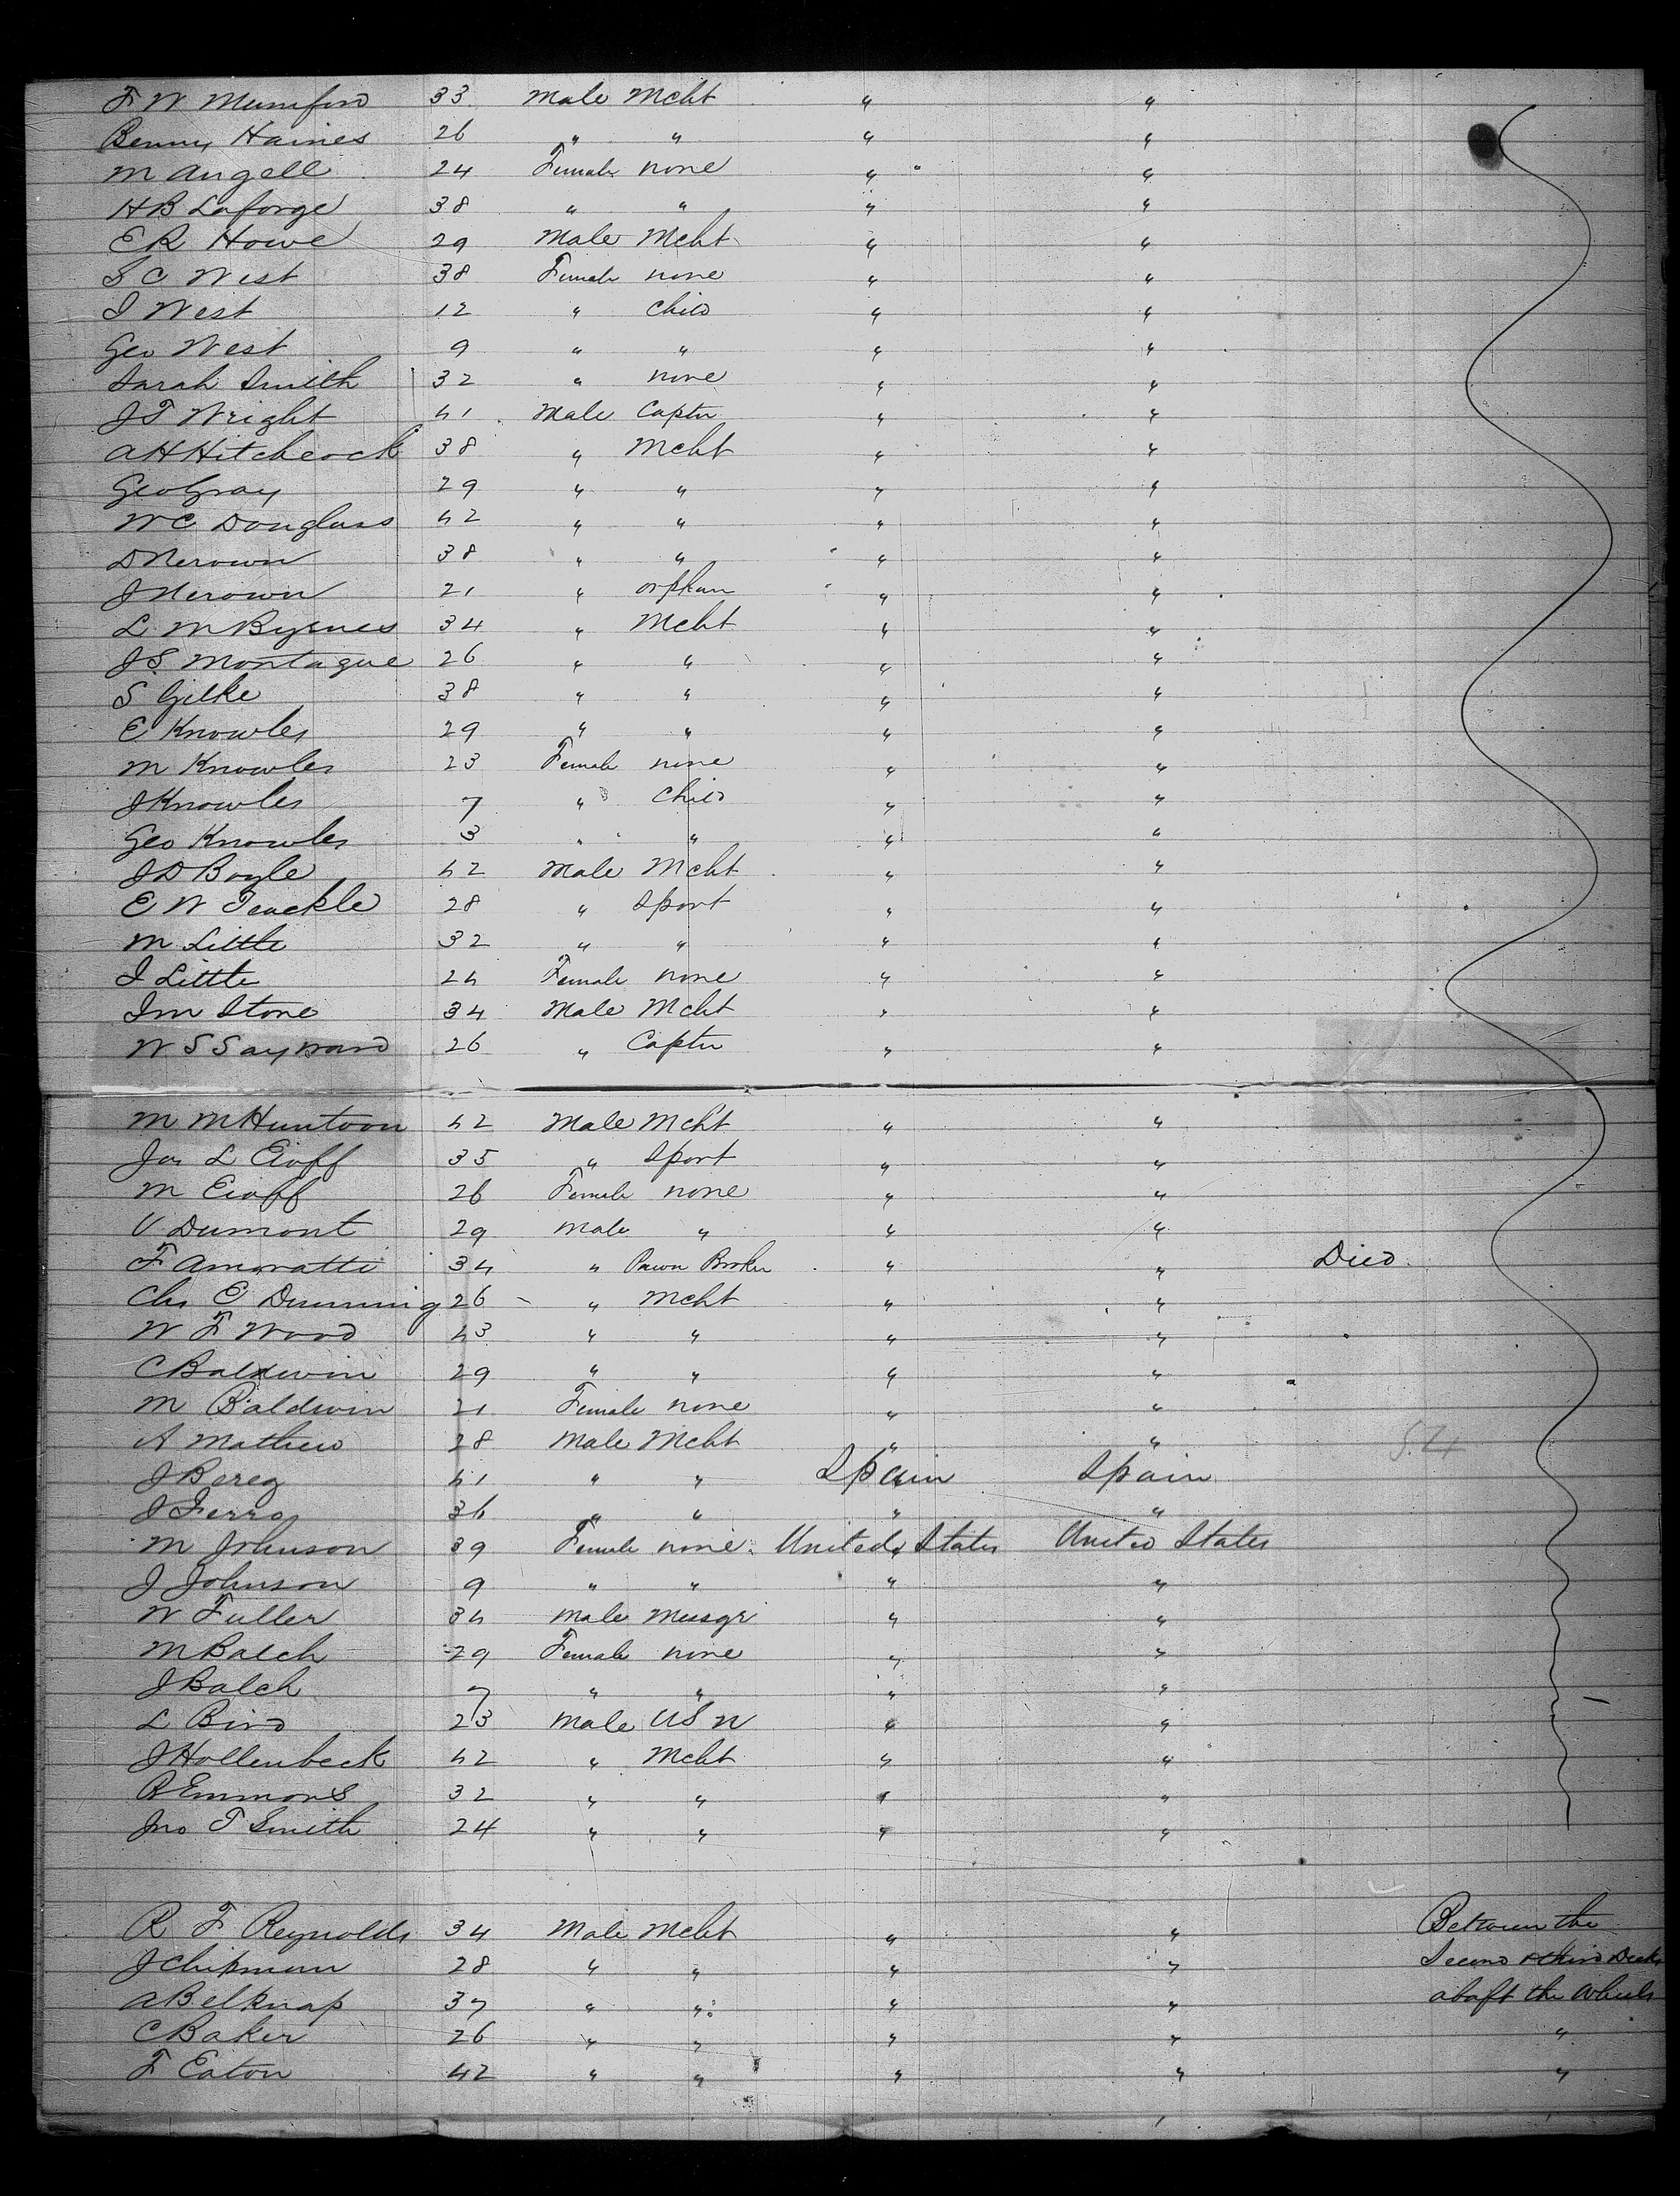 F W Mumford 33 Male Mcht " "
Benny Haines 26 " " " "
M Angell 24 Female none " "
H B Laforge 38 " " " "
E R Howe 29 Male Mcht " "
S C West 38 Female none " "
I West 12 " Child " "
Geo West 9 " " " "
Sarah Smith 32 " none " "
J T Wright 41 Male Captn " "
A H Hitchcock 38 " Mcht " "
Geo Gray 29 " " " "
W C Douglass 42 " " " "
D Nerown 38 " " " "
J Nerown 21 " orphan " "
L M Byrnes 34 " Mcht " "
J S Montague 26 " " " "
S Gilke 38 " " " "
E Knowles 29 " " " "
M Knowles 23 Female none " "
J Knowles 7 " Child " "
Geo Knowles 3 " " " "
J D Boyle 42 Male Mcht " "
E W Teackle 28 " Sport " "
M Little 32 " " " "
I Little 24 Female none " "
Im Stone 34 Male Mcht " "
W S Sayward 26 " Captn " "
M M Huntoon 42 Male Mcht " "
Jas L Eioff 35 " Sport " "
M Eioff 26 Female none " "
V Dumont 29 Male " " "
F Amoratti 34 " Pawn Broker " " Died
Chs E Dunning 26 " Mcht " "
W F Wood 43 " " " "
C Baldwin 29 " " " "
M Baldwin 21 Female none " "
A Mathew 28 Male Mcht " "
J Bereg 41 " " Spain Spain
J Ferro 36 " " " "
M Johnson 39 Female none United States United States
J Johnson 9 " " " "
W Fuller 34 Male Messgr " "
M Balch 29 Female none " "
J Balch 7 " " " "
L Bird 23 Male U S N " "
J Hollenbeck 42 " Mcht " "
R Emmons 32 " " " "
Jno T Smith 24 " " " "
R F Reynolds 34 Male Mcht " " Between the
J Chipman 28 " " " " Second & third Decks
A Belknap 37 " " " " abaft the Wheels
C Baker 26 " " " " "
F Eaton 42 " " " " "